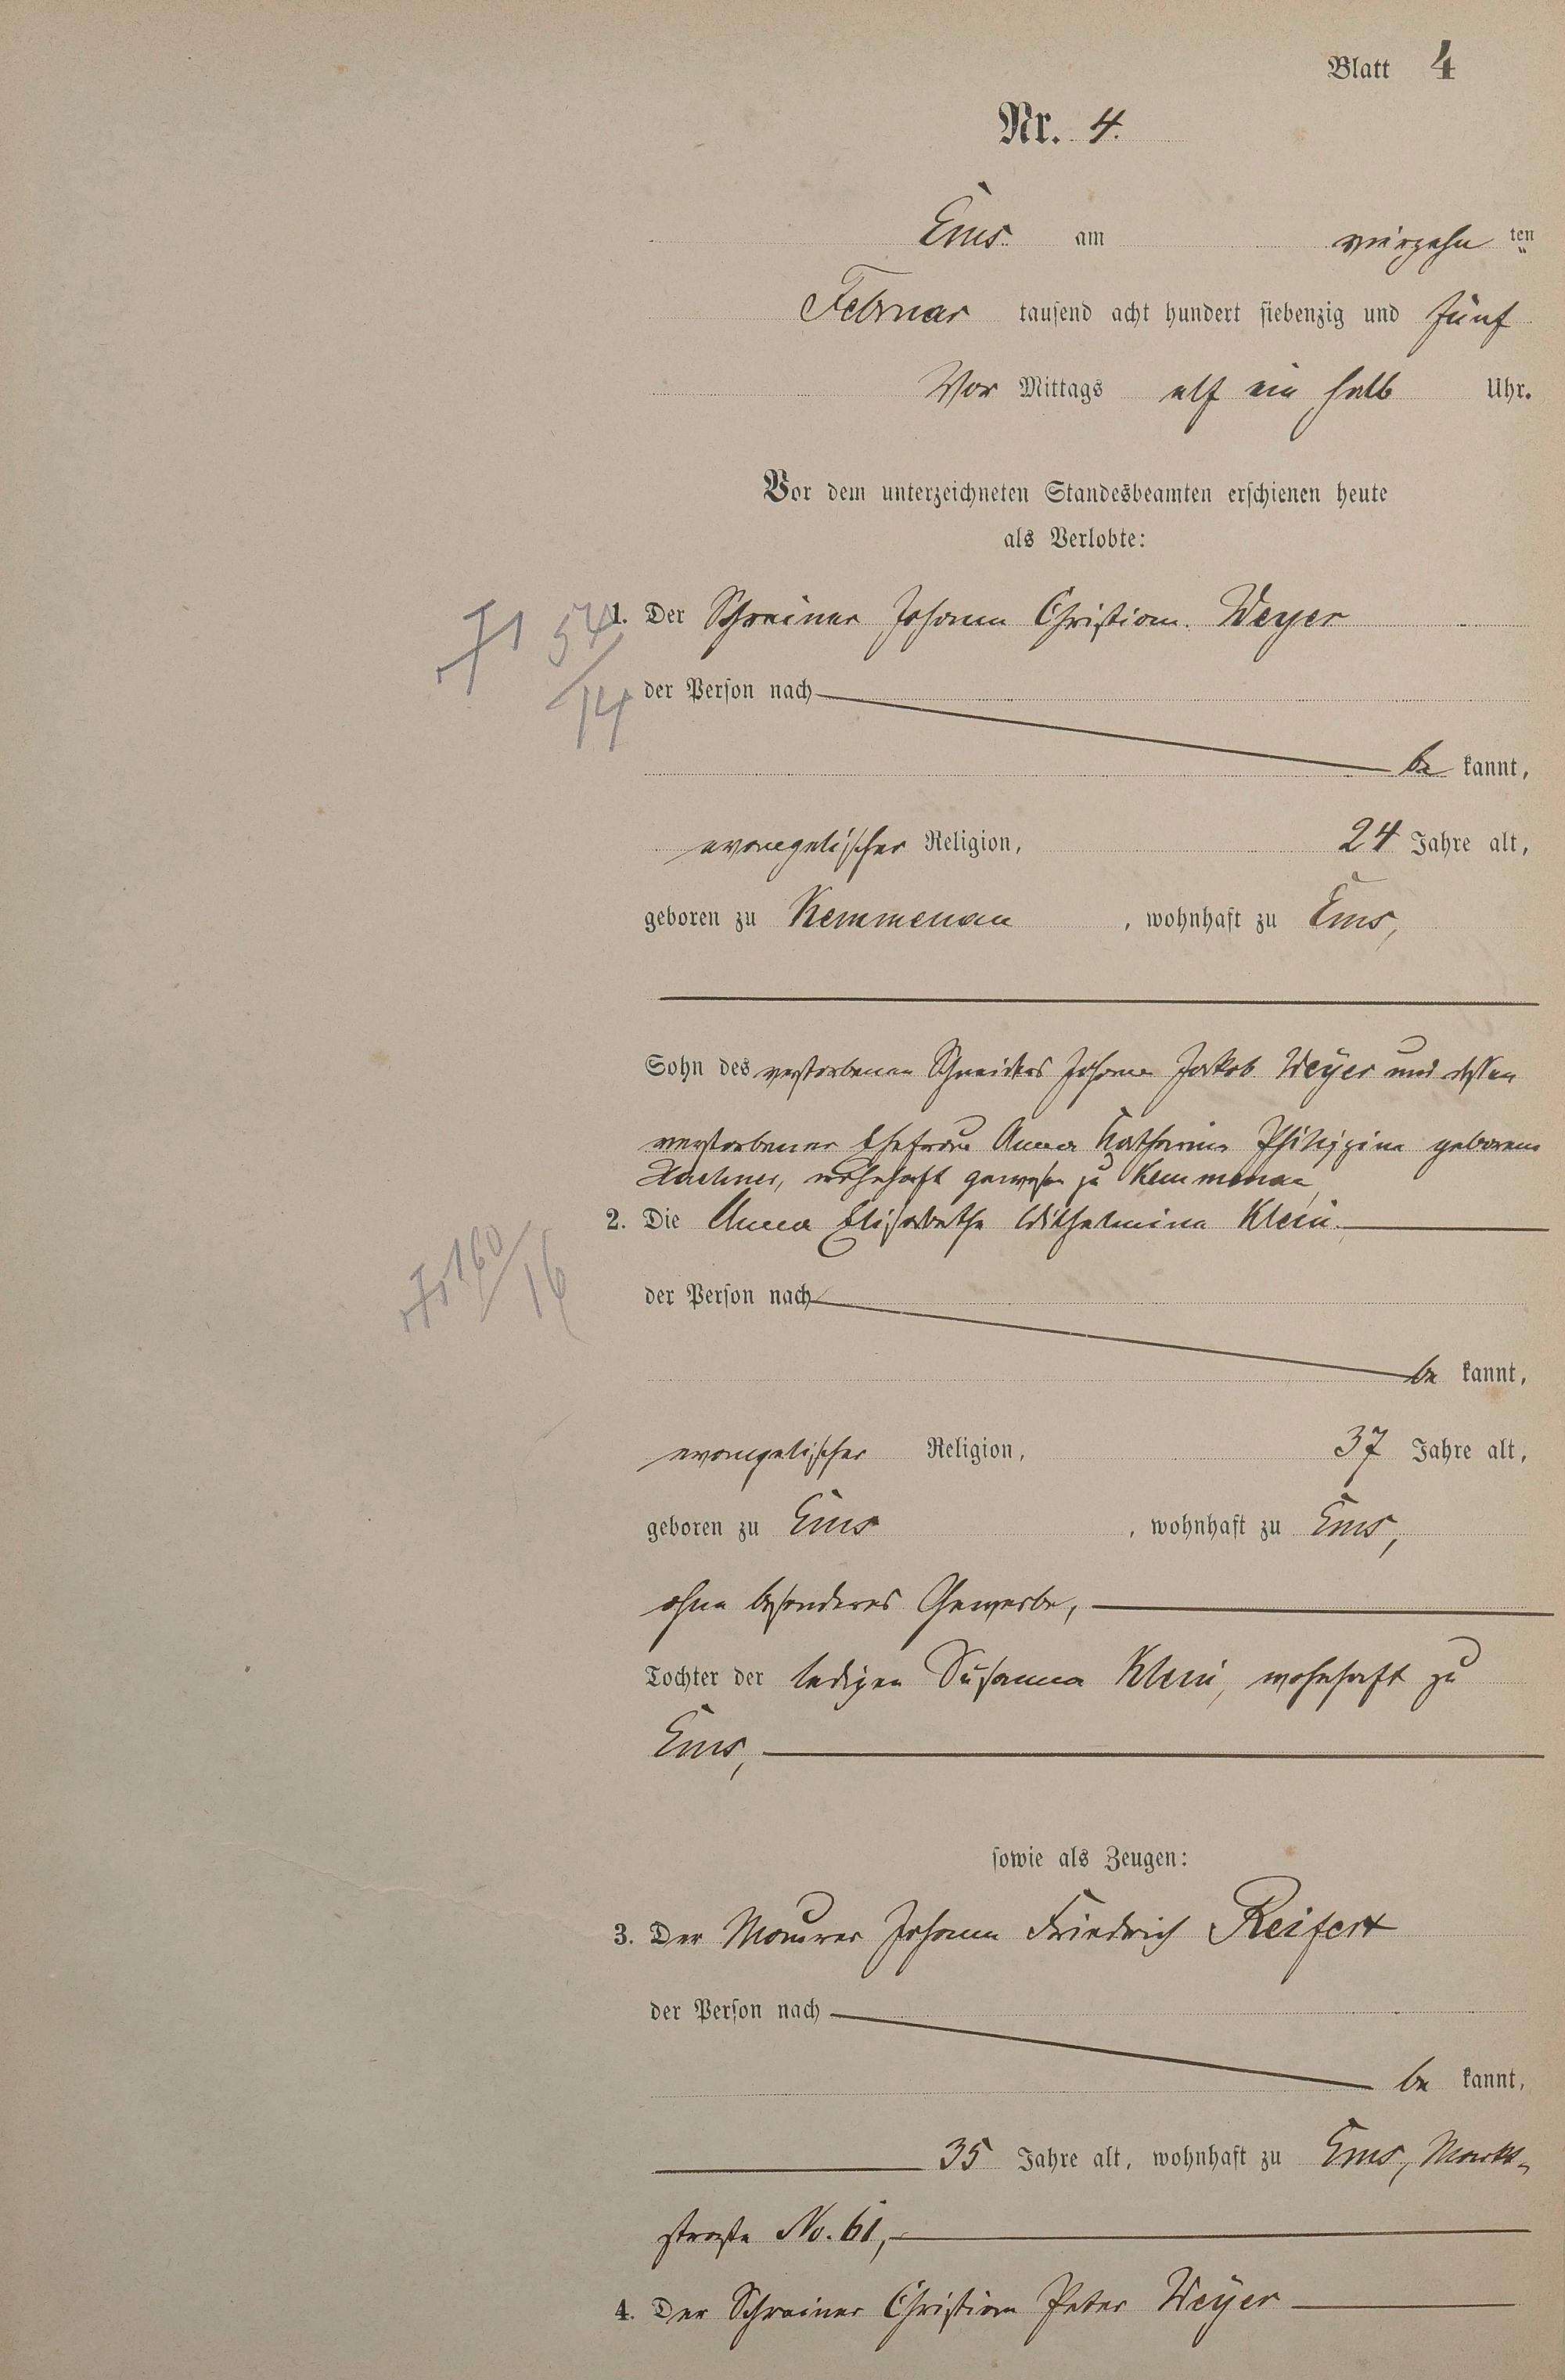 Blatt 4
Nr. 4.
Ems am vierzehn ten
Februar tausend acht hundert siebenzig und fünf
Vor Mittags elf ein halb Uhr.
Vor dem unterzeichneten Standesbeamten erschienen heute
als Verlobte:
1. Der Schreiner Johann Christian Weyer
der Person nach
be kannt,
evangelischer Religion, 24 Jahre alt,
geboren zu Kemmenau, wohnhaft zu Ems,
Sohn des verstorbenen Schneiders Johann Jakob Weyer und dessen
verstorbener Ehefrau Anna Katharina Philippine geborene
wohnhaft gewesen zu Kemmenau,
2. Die Anna Elisabethe Wilhelmine Klein
der Person nach
be kannt,
evangelischer Religion, 37 Jahre alt,
geboren zu Ems, wohnhaft zu Ems,
ohne besonderes Gewerbe,
Tochter der ledigen Susanna Klein, wohnhaft zu
Ems,
sowie als Zeugen:
3. Der Maurer Johann Friedrich Reifert
der Person nach
be kannt,
35 Jahre alt, wohnhaft zu Ems, Markt-
straße No. 61,
4. Der Schreiner Christian Peter Weyer
† 54/14
† 160/16